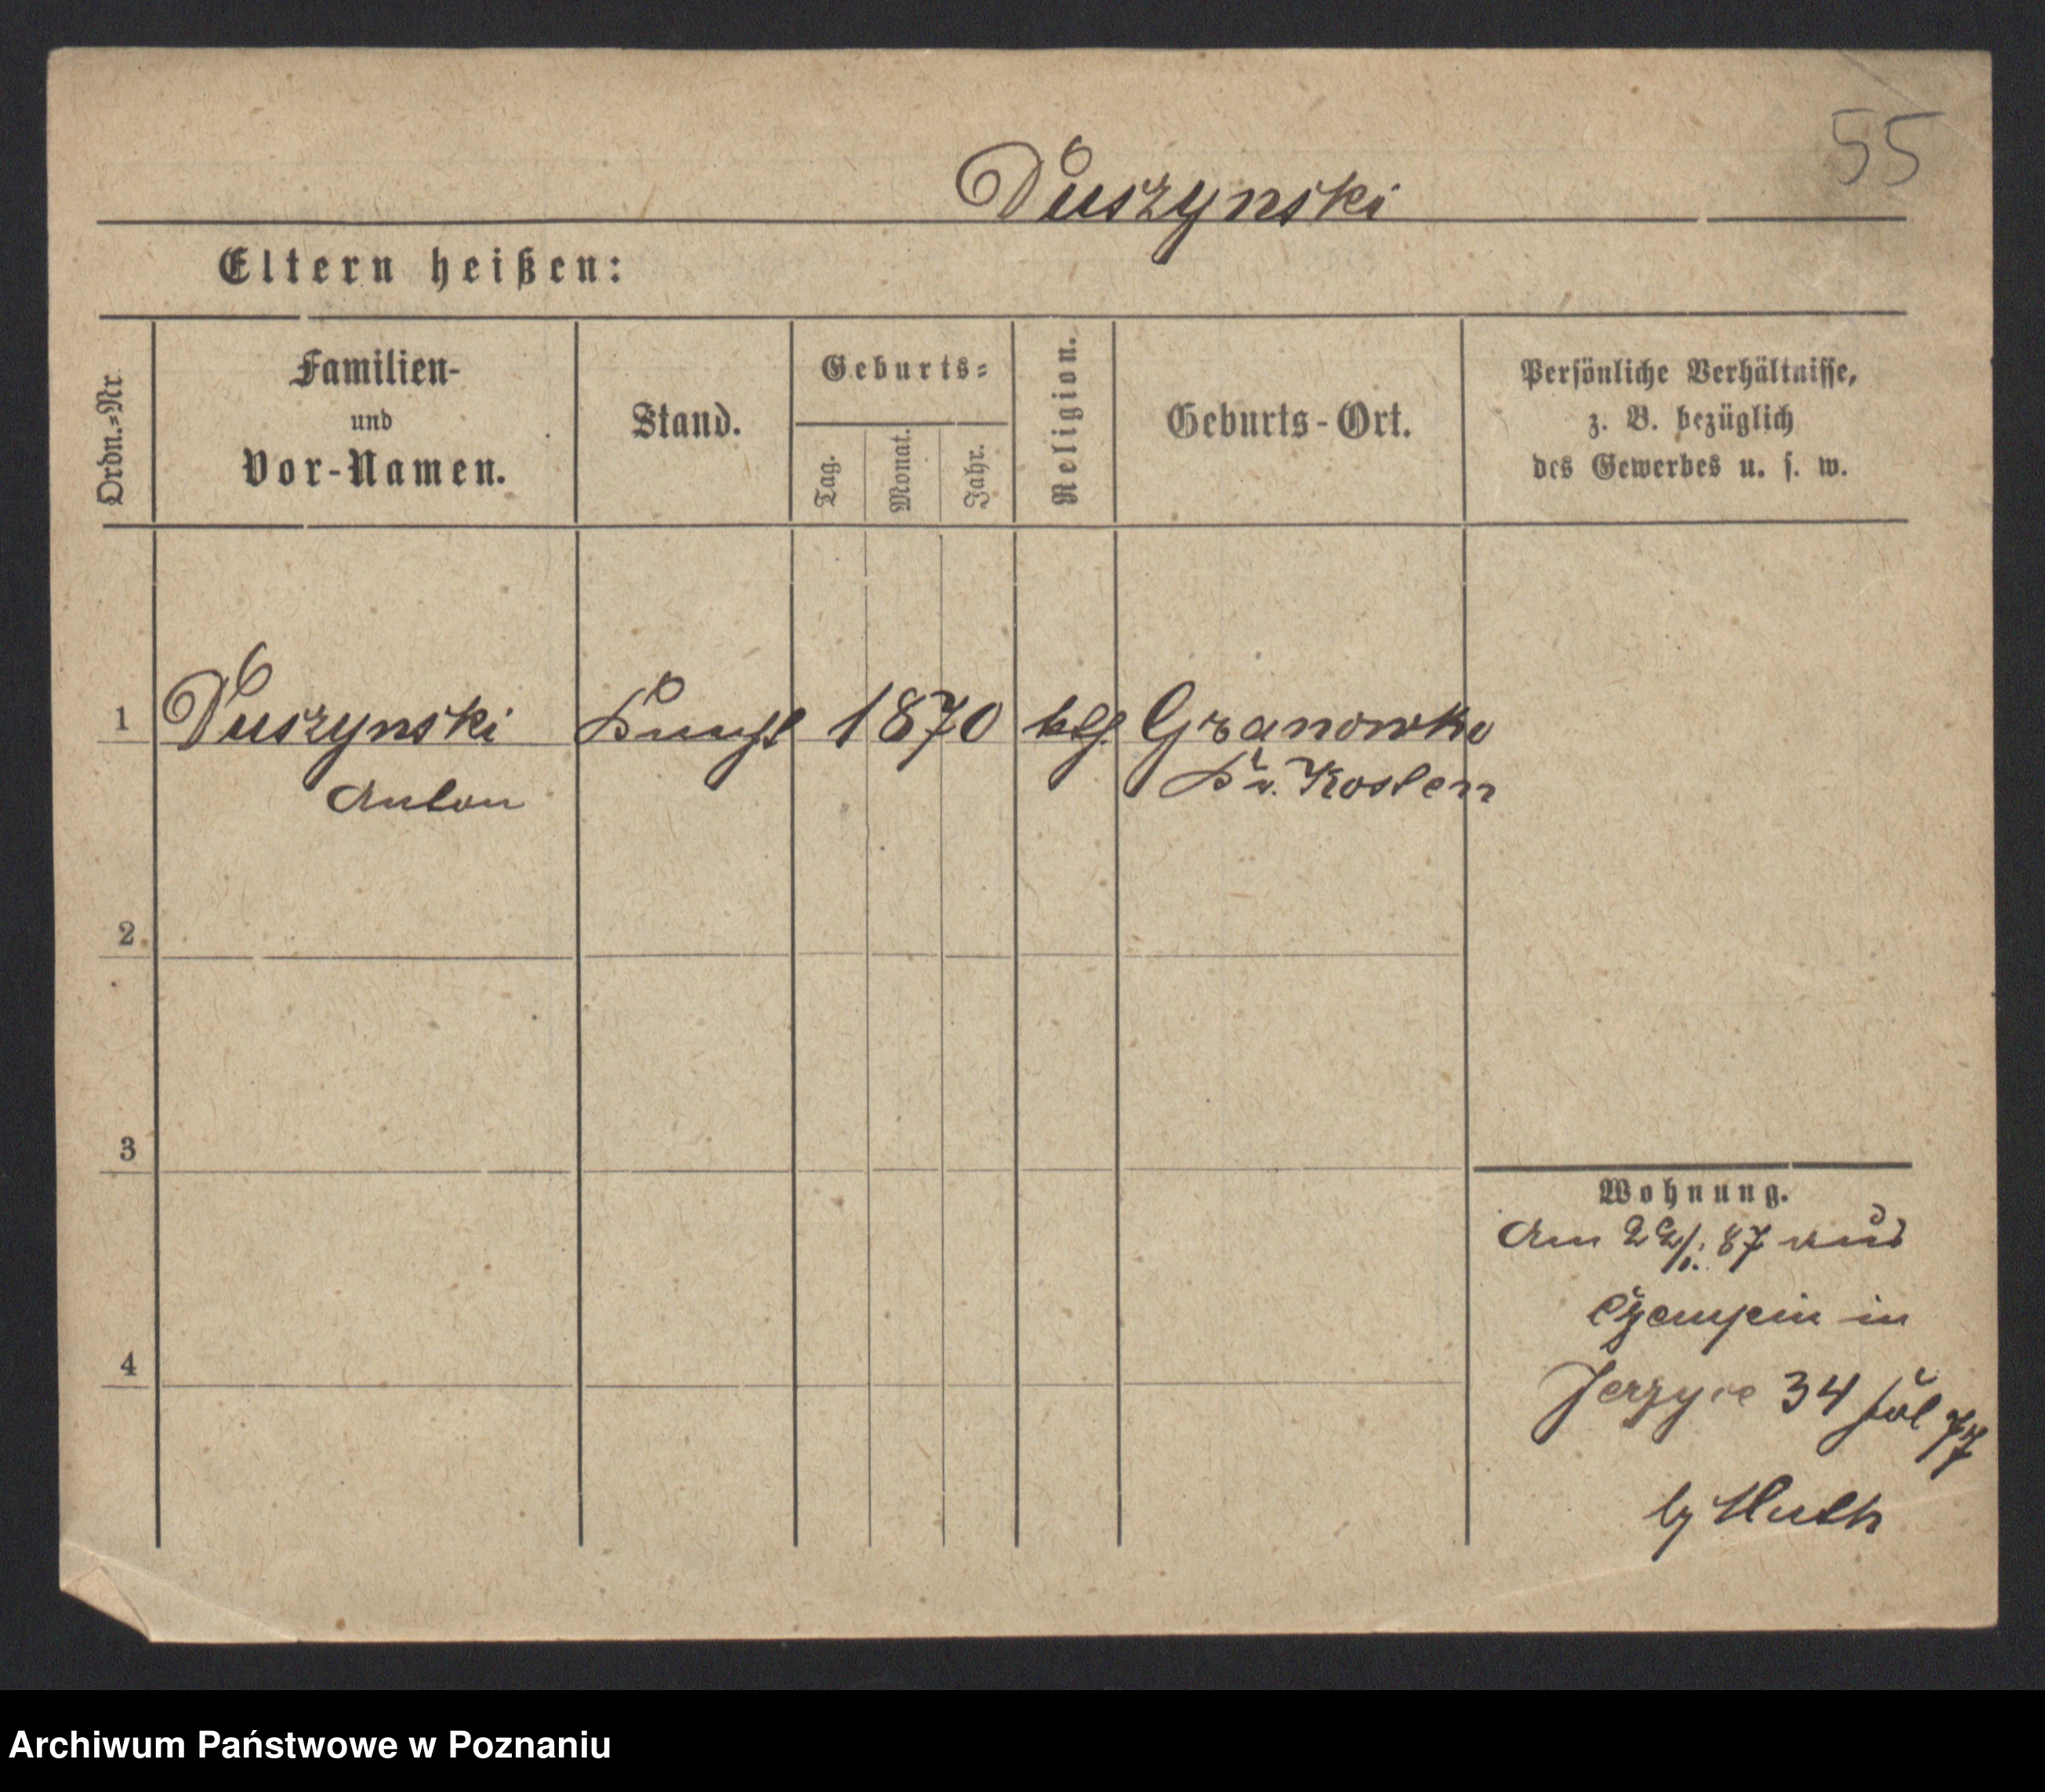 55
Duszynski
Eltern heißen:
Ordn.=Nr.
Familien-
und
Vor-Namen.
Stand.
Geburts=
Tag.
Monat.
Jahr.
Religion.
Geburts-Ort.
Persönliche Verhältnisse,
z. B. bezüglich
des Gewerbes u. s. w.
1 Duszynski Knecht 1870 kth. Granowko
Anton Kr. Kosten
2
3
4
Wohnung.
Am 22/1. 87 aus
Czempin in
Jerzyce 34
by Huth
Archiwum Państwowe w Poznaniu